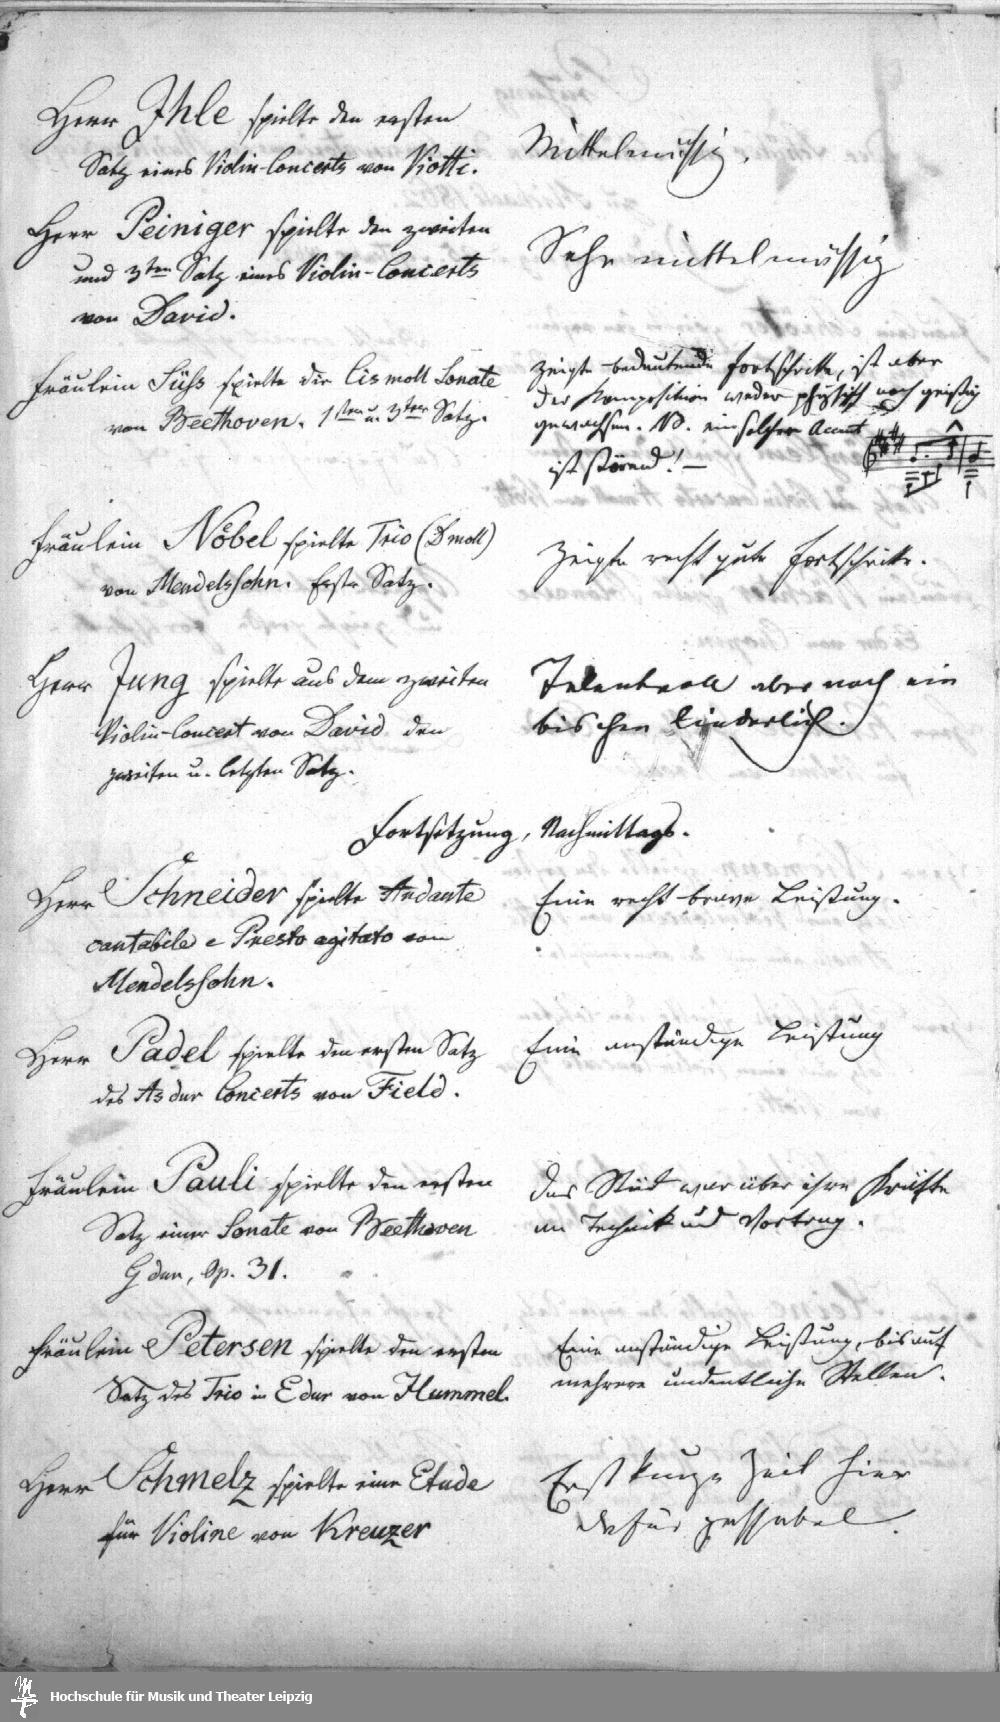 Herr Ihle spielte den ersten
Satz eines Violin-Concerts von Viotti.
Mittelmässig.
Herr Peiniger spielte den zweiten
und 3ten Satz eines Violin-Concerts
von David.
Sehr mittelmässig
Fräulein Süss spielte die Cis moll Sonate
von Beethoven. 1sten u. 3ten Satz.
zeigte bedeutende Fortschritte, ist aber
der Komposition weder physisch noch geistig
gewachsen. NB. ein solcher Accent
ist störend! —
Fräulein Nöbel spielte Trio (D moll)
von Mendelssohn. Erster Satz.
Zeigte recht gute Fortschritte.
Herr Jung spielte aus dem zweiten
Violin-Concert von David den
zweiten u. letzten Satz.
Talentvoll aber noch ein
bischen liederlich.
Fortsetzung, Nachmittags.
Herr Schneider spielte Andante
cantabile e Presto agitato von
Mendelssohn.
Eine recht brave Leistung.
Herr Padel spielte den ersten Satz
des As dur Concerts von Field.
Eine anständige Leistung
Fräulein Pauli spielte den ersten
Satz einer Sonate von Beethoven
G dur, Op. 31.
das Stück war über ihre Kräfte
an Technik und Vortrag.
Fräulein Petersen spielte den ersten
Satz des Trio in E dur von Hummel.
Eine anständige Leistung, bis auf
mehrere undeutliche Stellen.
Herr Schmelz spielte eine Etude
für Violine von Kreuzer
Erst kurze Zeit hier
dafür passabel.
Hochschule für Musik und Theater Leipzig